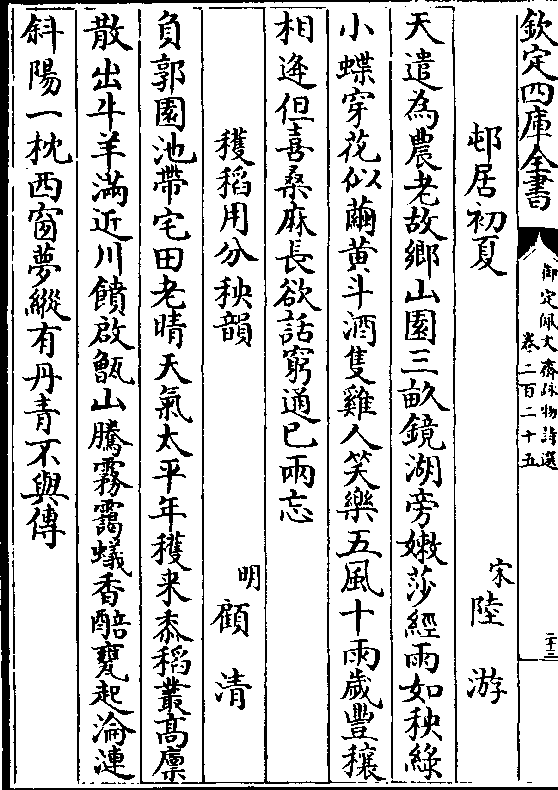 欽定四庫全書
御定佩文齋詠物詩選
卷二百二十五
二十三
邨居初夏
宋
陸游
天遣為農老故鄉山園三畝鏡湖旁嫩莎經雨如秧綠
小蝶穿花似繭黃斗酒隻雞人笑樂五風十雨歲豐穰
相逢但喜桑麻長欲話窮通已兩忘
穫稻用分秧韻
明
顧清
負郭園池帶宅田老晴天氣太平年穫来黍稻叢高廩
散出牛羊滿近川饙啟甑山騰霧靄蟻香醅甕起淪漣
斜陽一枕西窗夢縱有丹青不與傳